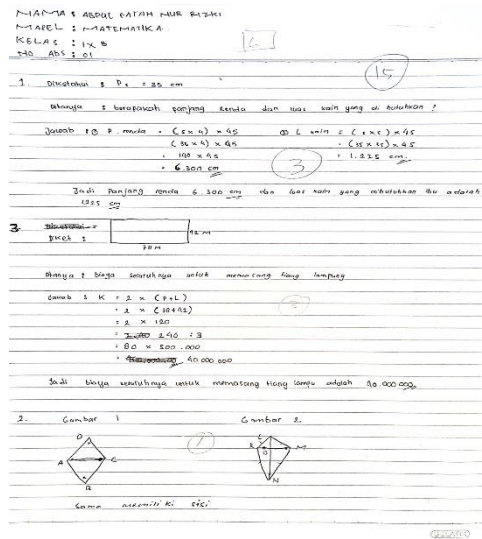 NAMA : ABDUL FATAH NUR RIZKI
MAPEL : MATEMATIKA
KELAS : IX B
NO ABS : 01
6
15
1. Diketahui : P = 35 cm
Ditanya : berapakah panjang renda dan luas kain yang di butuhkan ?
Jawab : ① P. renda = (s x 4) x 45
(35 x 4) x 45
= 140 x 45
= 6.300 cm
② L kain = (s x s) x 45
= (35 x 35) x 45
= 1.225 cm
3
Jadi Panjang renda 6.300 cm dan luas kain yang dibutuhkan itu adalah
1225 cm
3. Diketahui =
Diket :
42 M
78 M
Ditanya : biaya seluruhnya untuk memasang tiang lampung
Jawab : K = 2 x (P+L)
= 2 x (78+42)
= 2 x 120
= 240 : 3
= 80 x 500.000
= 40.000.000
Jadi biaya seluruhnya untuk memasang tiang lampu adalah 40.000.000
2. Gambar 1
Gambar 2
1
D
A
C
B
L
K
O
M
N
Sama memiliki sisi